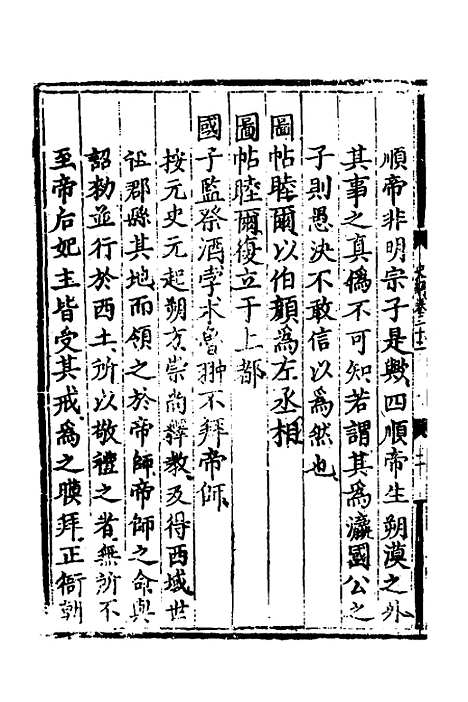 順帝非明宗子是歟四順帝生朔漠之外
其事之真僞不可知若謂其爲瀛國公之
子則愚決不敢信以爲然也
圖帖睦爾以伯顏爲左丞相
圖帖睦爾復立于上都
國子監祭酒孛术魯翀不拜帝師
按元史元起朔方崇尚釋教及得西域世
祖郡縣其地而領之於帝師帝師之命與
詔勑並行於西土所以敬禮之者無所不
至帝后妃主皆受其戒爲之膜拜正衙朝